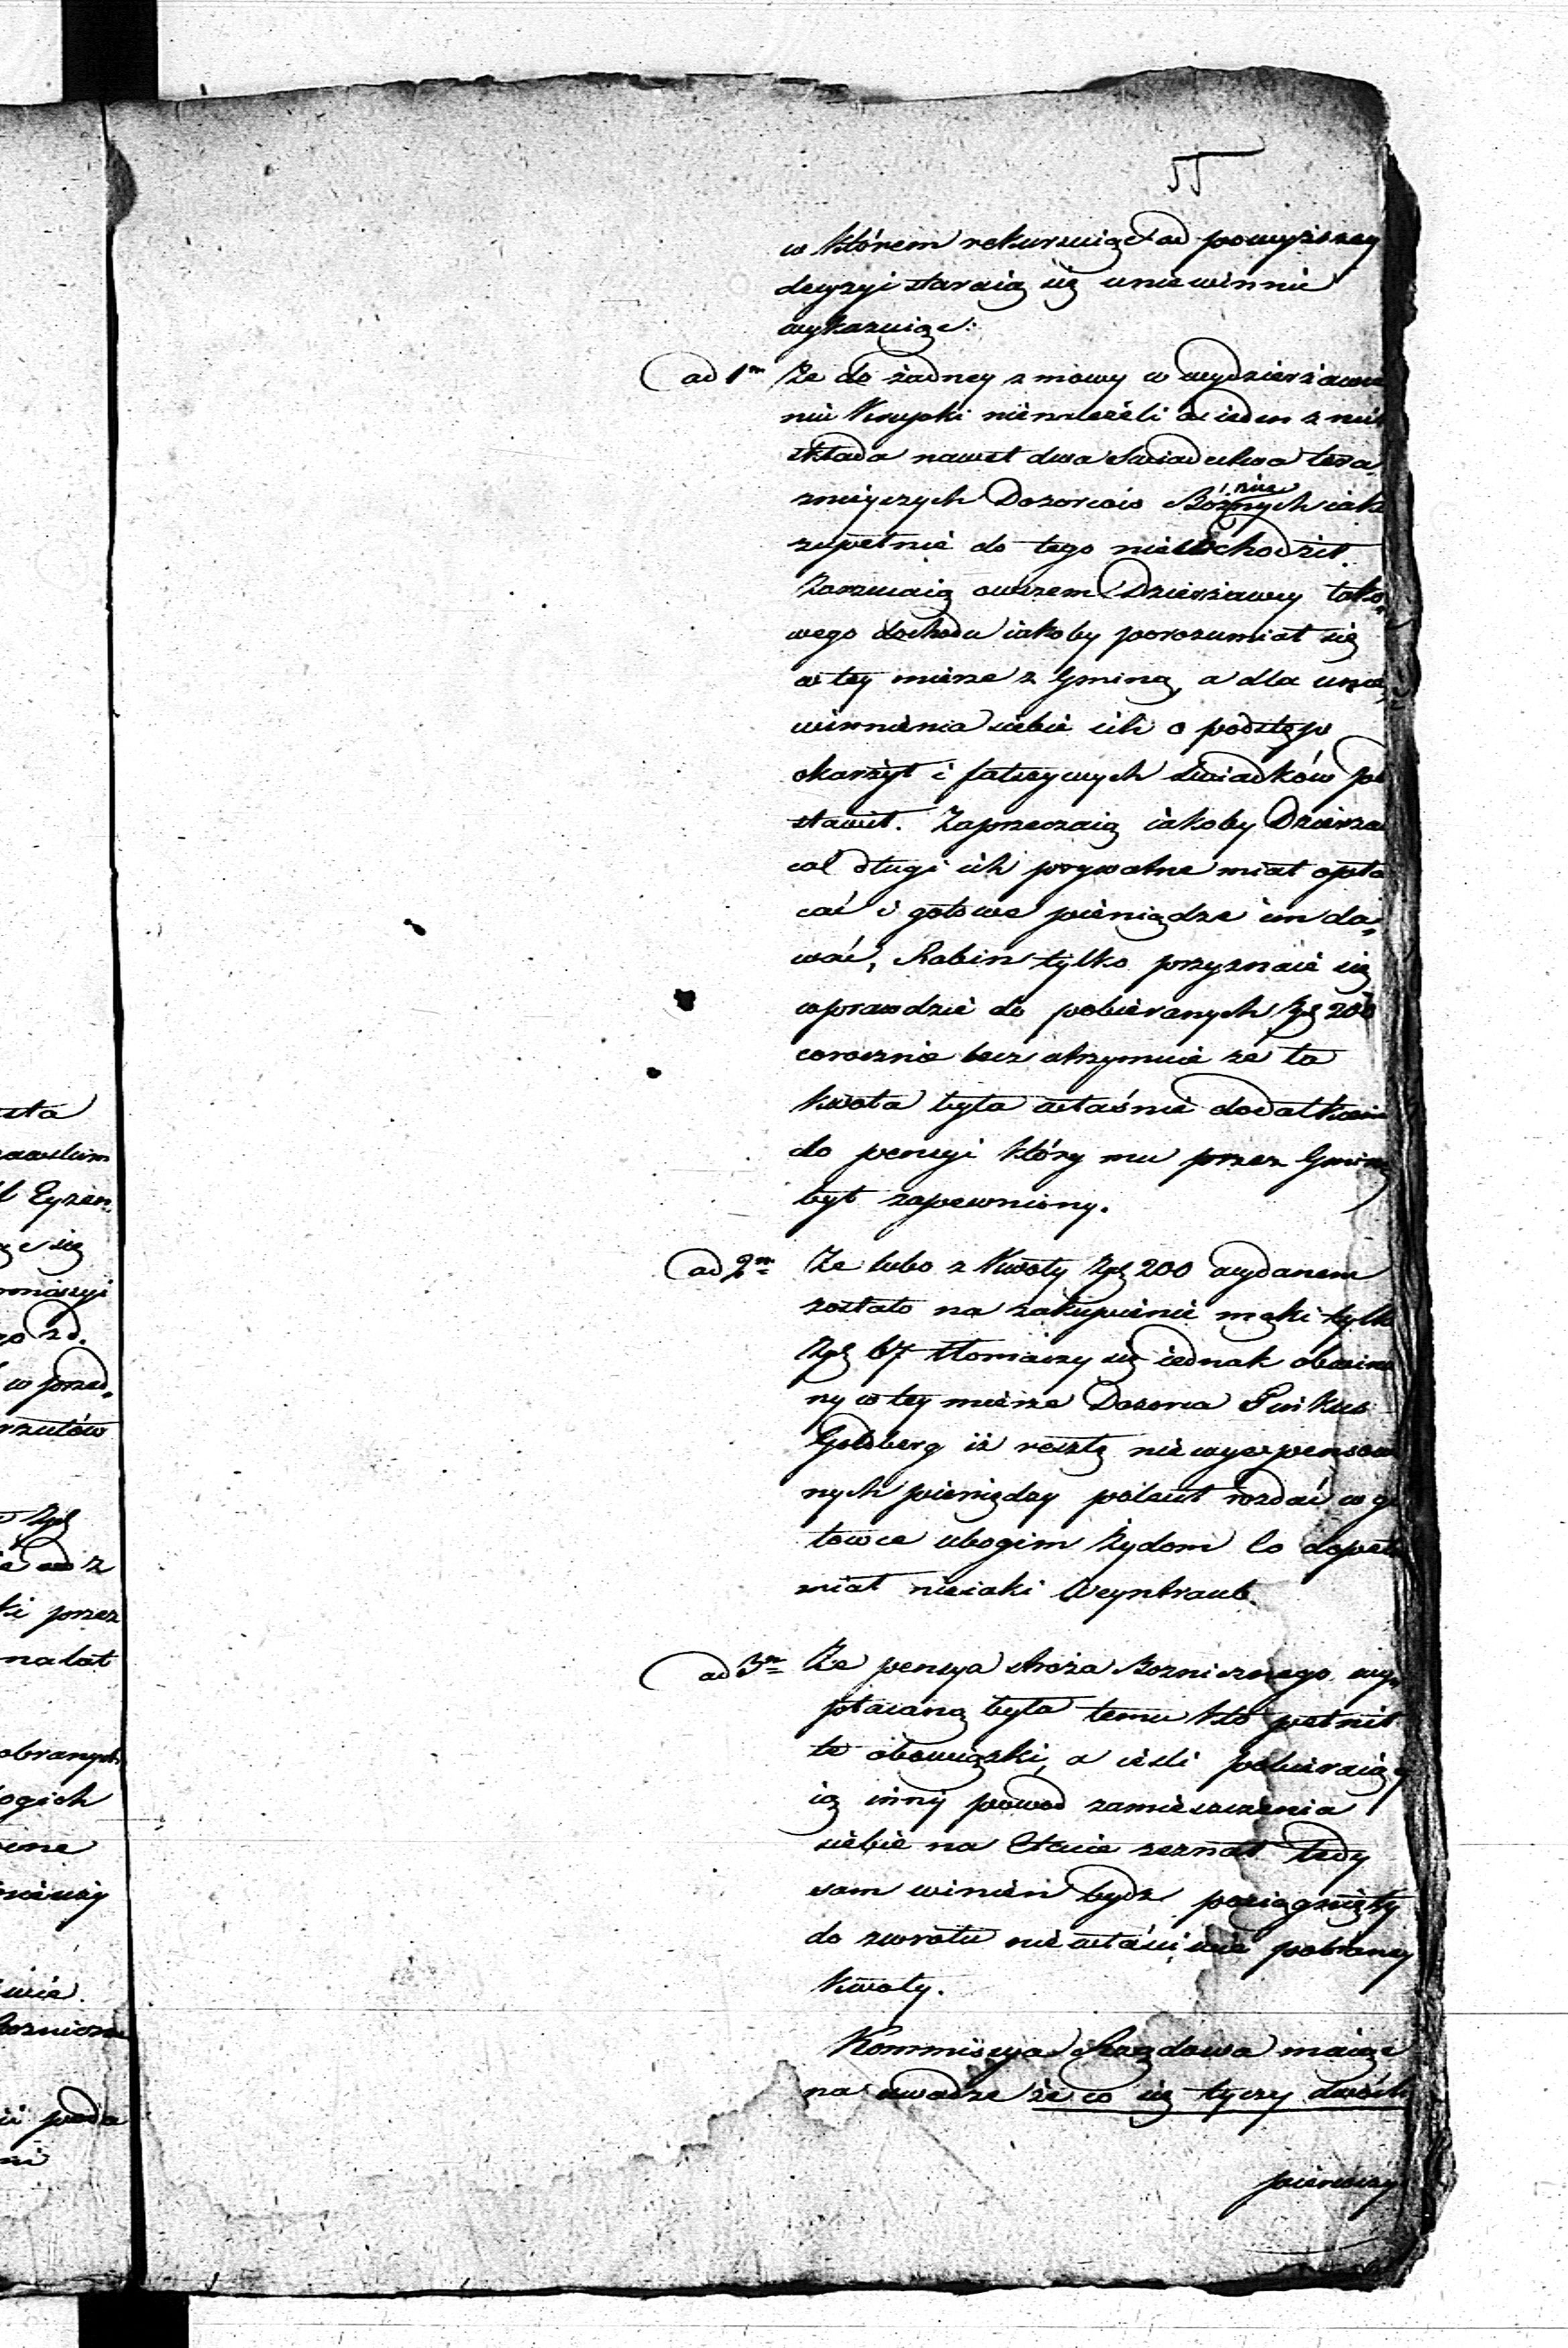 55
w którem rekursuiąc od powyższey
decyzyi staraią się uniewinnić
wykazuiąc:
ad 1m Że do żadney zmowy w wydzierżawie
niu Krupki nienależeli a ieden z nich
składa nawet dwa Świadectwa tera
znieyszych Dozorców Bóżnicznych iako
zupełnie do tego niewchodził.
Zarzucaią owszem Dzierżawcy tako
wego dochodu iakoby porozumiał się
w tey mierze z Gminą, a dla unie
winnienia siebie ich o podstęp
okarżył i fałszywych świadków po
stawił. Zaprzeczaią iakoby Dzierża
wca długi ich prywatne miał opła
cać i gotowe pieniądze im da
wać, Rabin tylko przyznaie się
wprawdzie do pobieranych Zł 200
corocznie lecz utrzymuie że ta
kwota była właśnie dodatkiem
do pensyi który mu przez Gminę
był zapewniony.
ad 2m Że lubo z Kwoty Zł 200 wydanem
zostało na zakupienie mąki tylko
Zł 67 tłomaczy się iednak obwinio
ny w tey mierze Dozorca Pinkus
Goldberg iż resztę niewyexpensowa
nych pieniędzy polecił rozdać w go
towce ubogim Żydom Co dopeł
miał nieiaki Weyntraub.
ad 3m Że pensya stróża Bożnicznego wy
płacaną była temu kto pełnił
te obowiązki, a ieśli pobieraiący
ią inny powod zamieszczenia
siebie na Etacie zeznał tedy
sam winien bydz pociągnięty
do zwrotu niewłaściwie pobraney
kwoty.
Kommissya Rządowa maiąc
na uwadze że co się tyczy dwóch
pierwszy
sta
Eyzen
ąc się
w przed
rzutów
Zł
ki przez
na lat
obranych
ogich
one
wie.